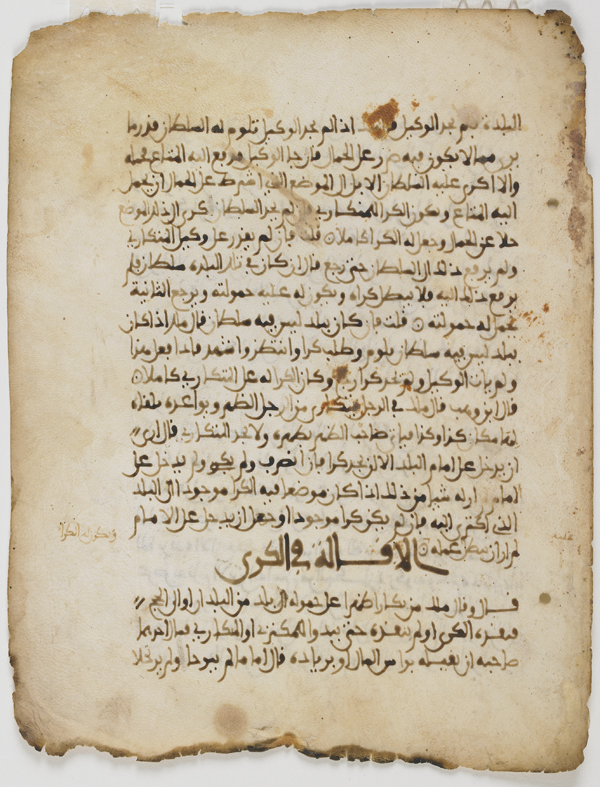 البلدة فلم يجد الوكيل قال اذا لم يجد الوكيل تلوم له السلطان قدر ما
يرى مما لا يكون فيه ضرر على الجمال فان جا الوكيل فدفع اليه المتاع فحمله
والا اكرى عليه السلطان الابل الى الموضع الذي اشترط على الجمال ان يحمل
اليه المتاع ويكون الكرا للمتكاري فان لم يجد السلطان كرى الى ذلك الموضع
خلا عن الجمال وجعل له الكرا كاملا قلت فان لم يقدر على وكيل المتكاري
ولم يرفع ذلك الى السلطان حتى رجع قال ان كان في تلك البلدة سلطان فلم
يرفع ذلك اليه فلا يبطل كراه ويكون له عليه حمولته ويرجع الثانية
يحمل له حمولته قلت فان كان ببلد ليس فيه سلطان قال ملك اذا كان
ببلد ليس فيه سلطان تلوم وطلب كرا وانتظر واشهد فاذا فعل هذا
ولم يات الوكيل ولم يجد كرا رجع وكان الكرا له على المتكاري كاملا
قال ابن وهب قال ملك في الرجل يتكارى من الرجل الظهر ويواعده يلقاه
لمكان كذا وكذا فياتي صاحب الظهر بظهره ولا يجد المتكاري قال ارى
ان يدخل على امام البلد الا ان يجد كرا فان انصرف ولم يكر ولم يدخل على
الامام لم ار له شيا من ذلك اذا كان موضعا فيه الكرا موجود الى البلد
الذي اكترى اليه فان لم يكن كرا موجودا وجهل ان يدخل على الامام
لم ار ان يبطل عمله
الاقالة في الكرى
قال وقال ملك من تكارا ظهرا على حمولة الى بلد من البلدان او الى الحج
فنقده الكرى او لم ينقده حتى يبدو للمكتري او المتكاري فسال احدهما
صاحبه ان يقيله براس المال او بزيادة قال اما ما لم يبرحا ولم يرحلا